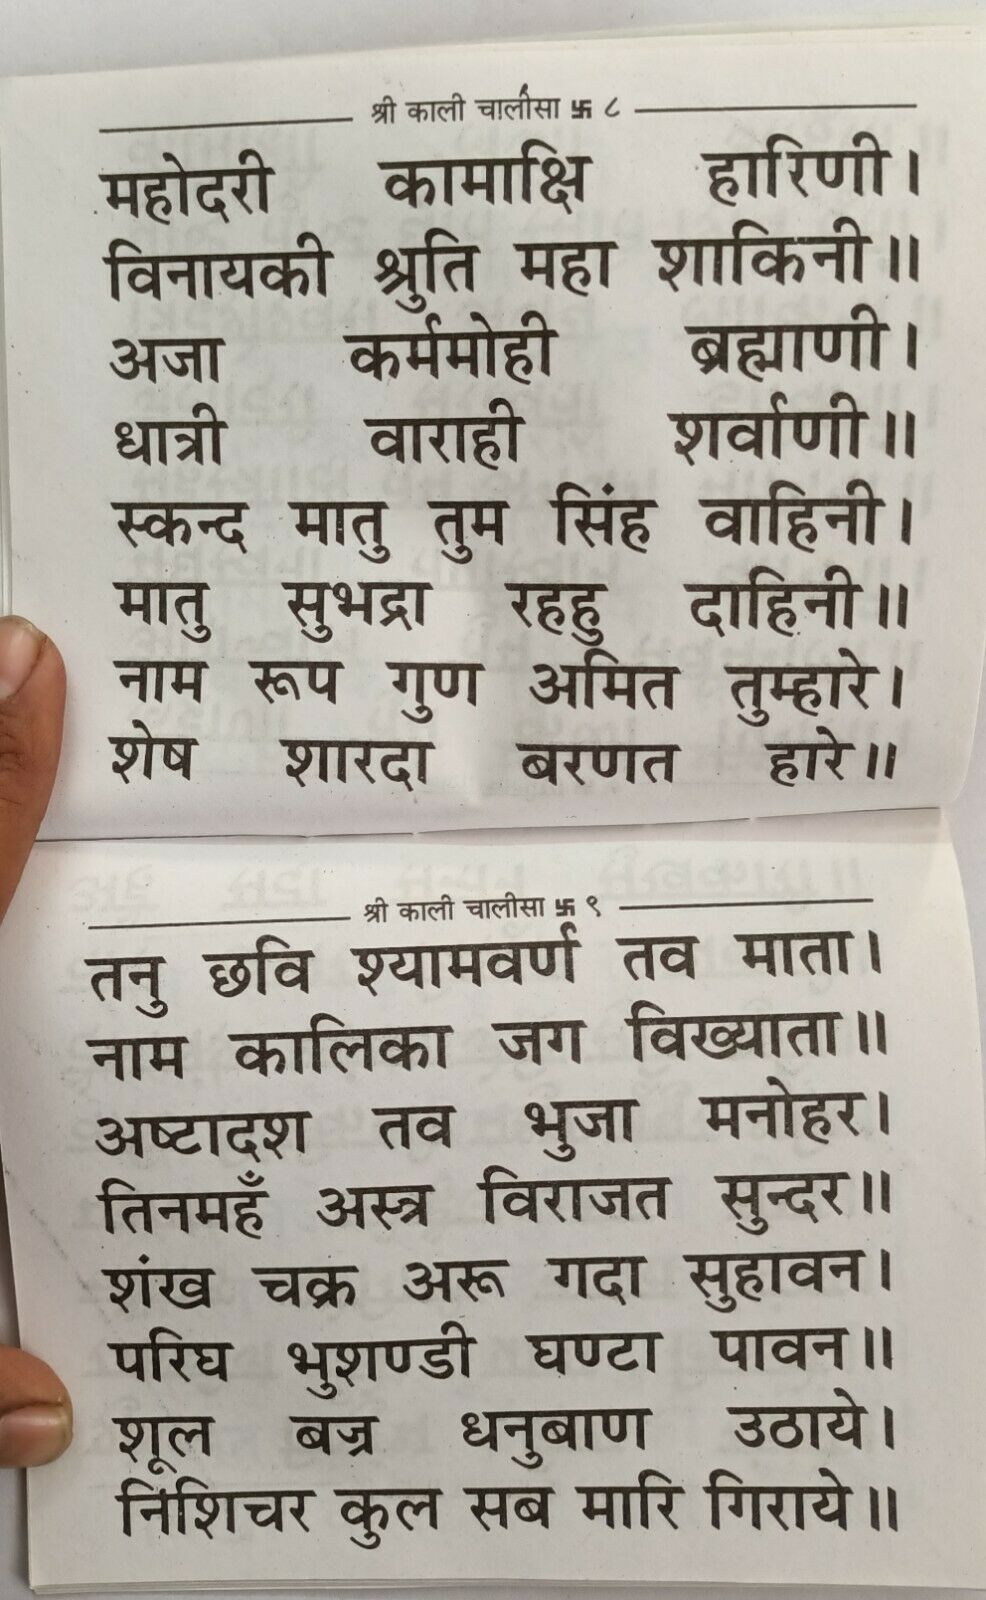 श्री काली चालीसा 卐 ८
महोदरी कामाक्षि हारिणी।
विनायकी श्रुति महा शाकिनी॥
अजा कर्ममोही ब्रह्माणी।
धात्री वाराही शर्वाणी॥
स्कन्द मातु तुम सिंह वाहिनी।
मातु सुभद्रा रहहु दाहिनी॥
नाम रूप गुण अमित तुम्हारे।
शेष शारदा बरणत हारे॥
श्री काली चालीसा 卐 ९
तनु छवि श्यामवर्ण तव माता।
नाम कालिका जग विख्याता॥
अष्टादश तव भुजा मनोहर।
तिनमहँ अस्त्र विराजत सुन्दर॥
शंख चक्र अरू गदा सुहावन।
परिघ भुशण्डी घण्टा पावन॥
शूल बज्र धनुबाण उठाये।
निशिचर कुल सब मारि गिराये॥